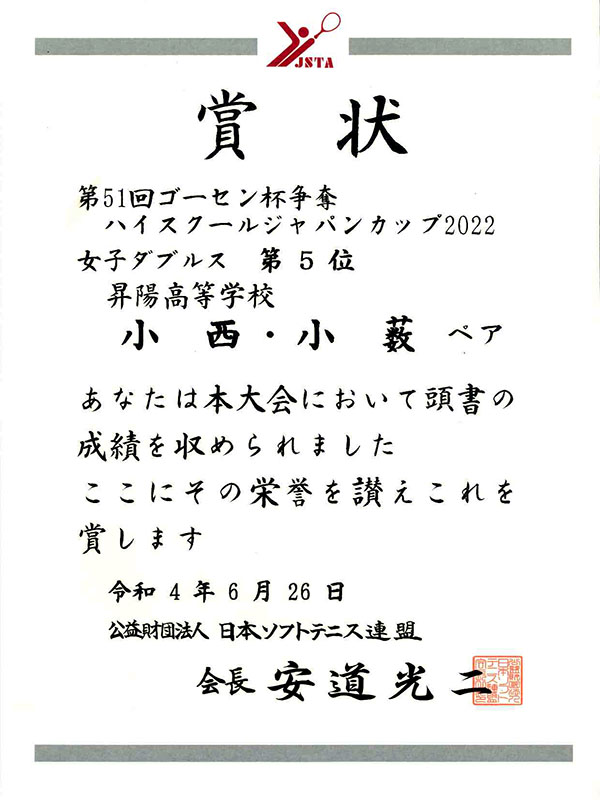 JSTA
賞状
第51回ゴーセン杯争奪
ハイスクールジャパンカップ2022
女子ダブルス 第5位
昇陽高等学校
小西・小薮 ペア
あなたは本大会において頭書の
成績を収められました
ここにその栄誉を讃えこれを
賞します
令和4年6月26日
公益財団法人 日本ソフトテニス連盟
会長 安道光二